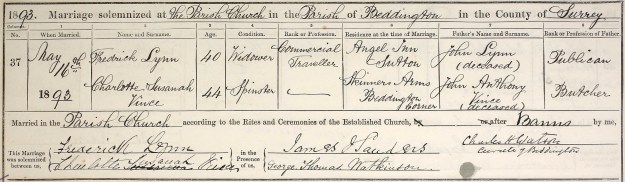 1893. Marriage solemnized at the Parish Church in the Parish of Beddington in the County of Surrey
No. When Married. Name and Surname. Age. Condition. Rank or Profession. Residence at the Time of Marriage. Father's Name and Surname. Rank or Profession of Father.
37 May 16th 1893 Fredrick Lynn 40 Widower Commercial Traveller Angel Inn Sutton John Lynn (deceased) Publican
Charlotte Susanah Vince 44 Spinster Skinners Arms Beddington Corner John Anthony Vince (deceased) Butcher
Married in the Parish Church according to the Rites and Ceremonies of the Established Church, by or after Banns by me,
This Marriage was solemnized between us, Frederick Lynn
Susanah Vince
in the Presence of us, James J Saunders
George Thomas Watkinson
Charles H Watson
Curate of Beddington